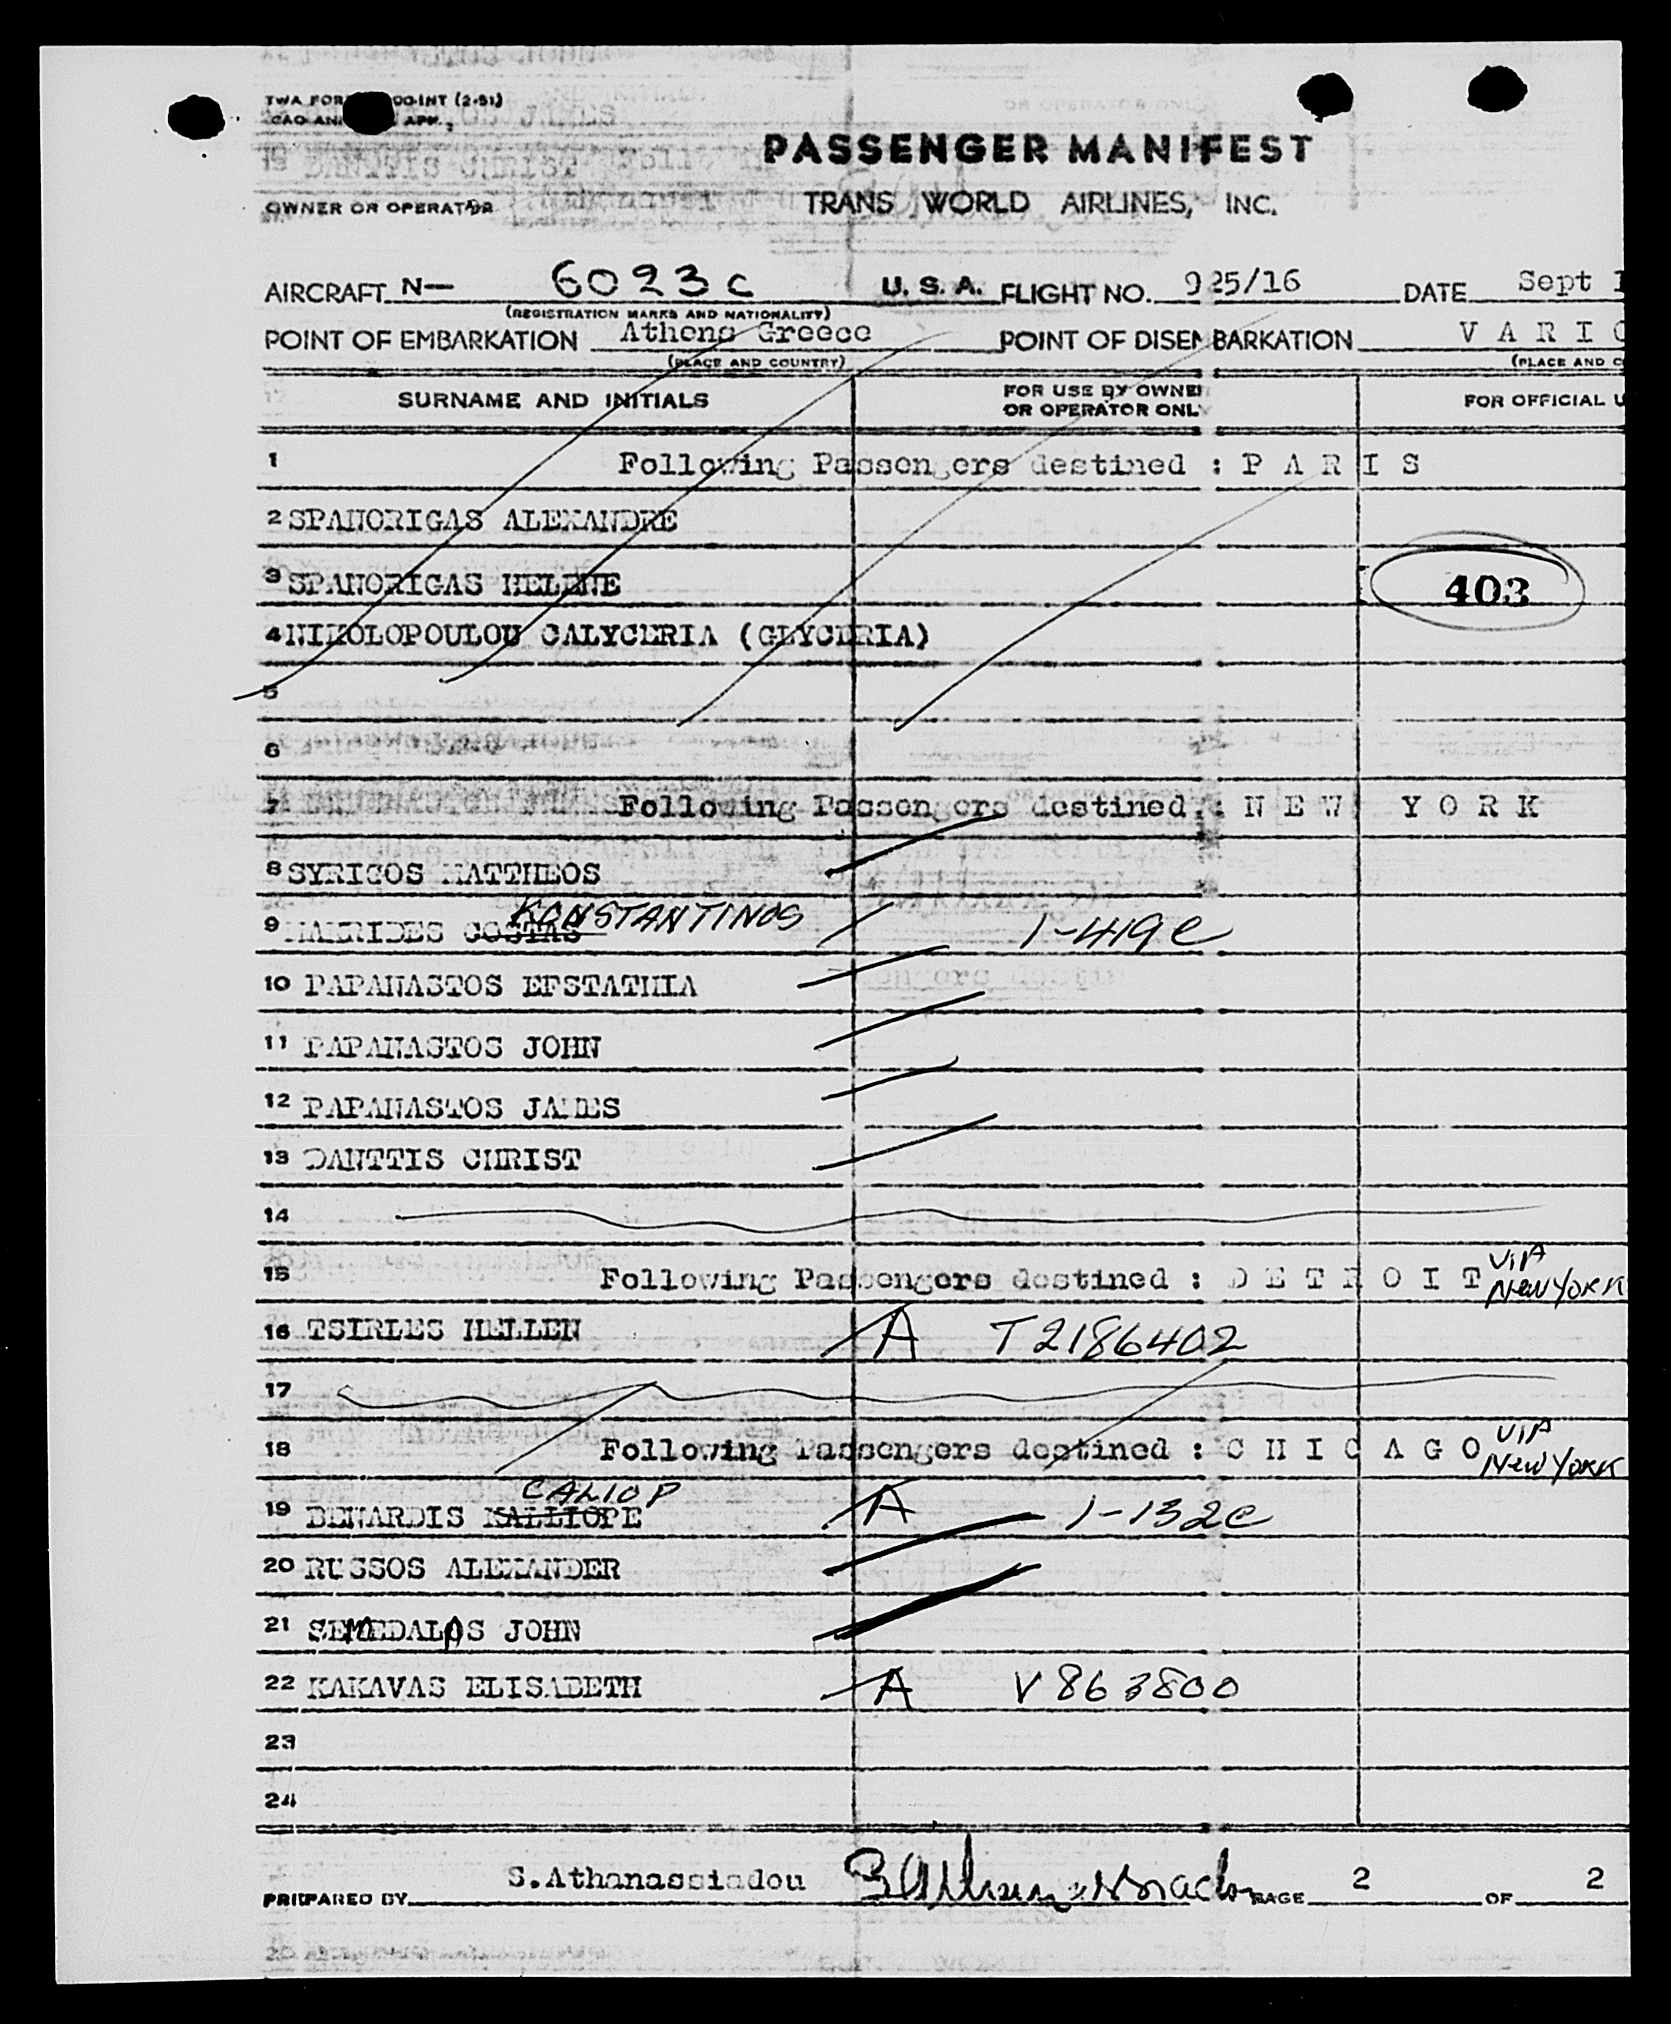 PASSENGER MANIFEST
TRANS WORLD AIRLINES, INC.
OWNER OR OPERATOR
AIRCRAFT N— 6023C U. S. A. FLIGHT NO. 925/16 DATE Sept
(REGISTRATION MARKS AND NATIONALITY)
POINT OF EMBARKATION Athens Greece POINT OF DISEMBARKATION V A R I O
(PLACE AND COUNTRY) (PLACE AND
SURNAME AND INITIALS FOR USE BY OWNER OR OPERATOR ONLY FOR OFFICIAL U
1 Following Passengers destined : P A R I S
2 SPANORIGAS ALEXANDRE
3 SPANORIGAS HELENE 403
4 NIKOLOPOULOU CALYCERIA (GLYCERIA)
5
6
7 Following Passengers destined : N E W Y O R K
8 SYRIGOS MATTHEOS
KONSTANTINOS
9 COSTAS 1-419e
10 PAPANASTOS EFSTATHIA
11 PAPANASTOS JOHN
12 PAPANASTOS JAMES
13 DANTTIS CHRIST
14
15 Following Passengers destined : D E T R O I T VIA New York
16 TSIRLES HELLEN A T2186402
17
18 Following Passengers destined : C H I C A G O VIA New York
CALIOP
19 BENARDIS KALLIOPE A 1-132e
20 RUSSOS ALEXANDER
21 JOHN
22 KAKAVAS ELISABETH A V863800
23
24
PREPARED BY S.Athanassiadou PAGE 2 OF 2